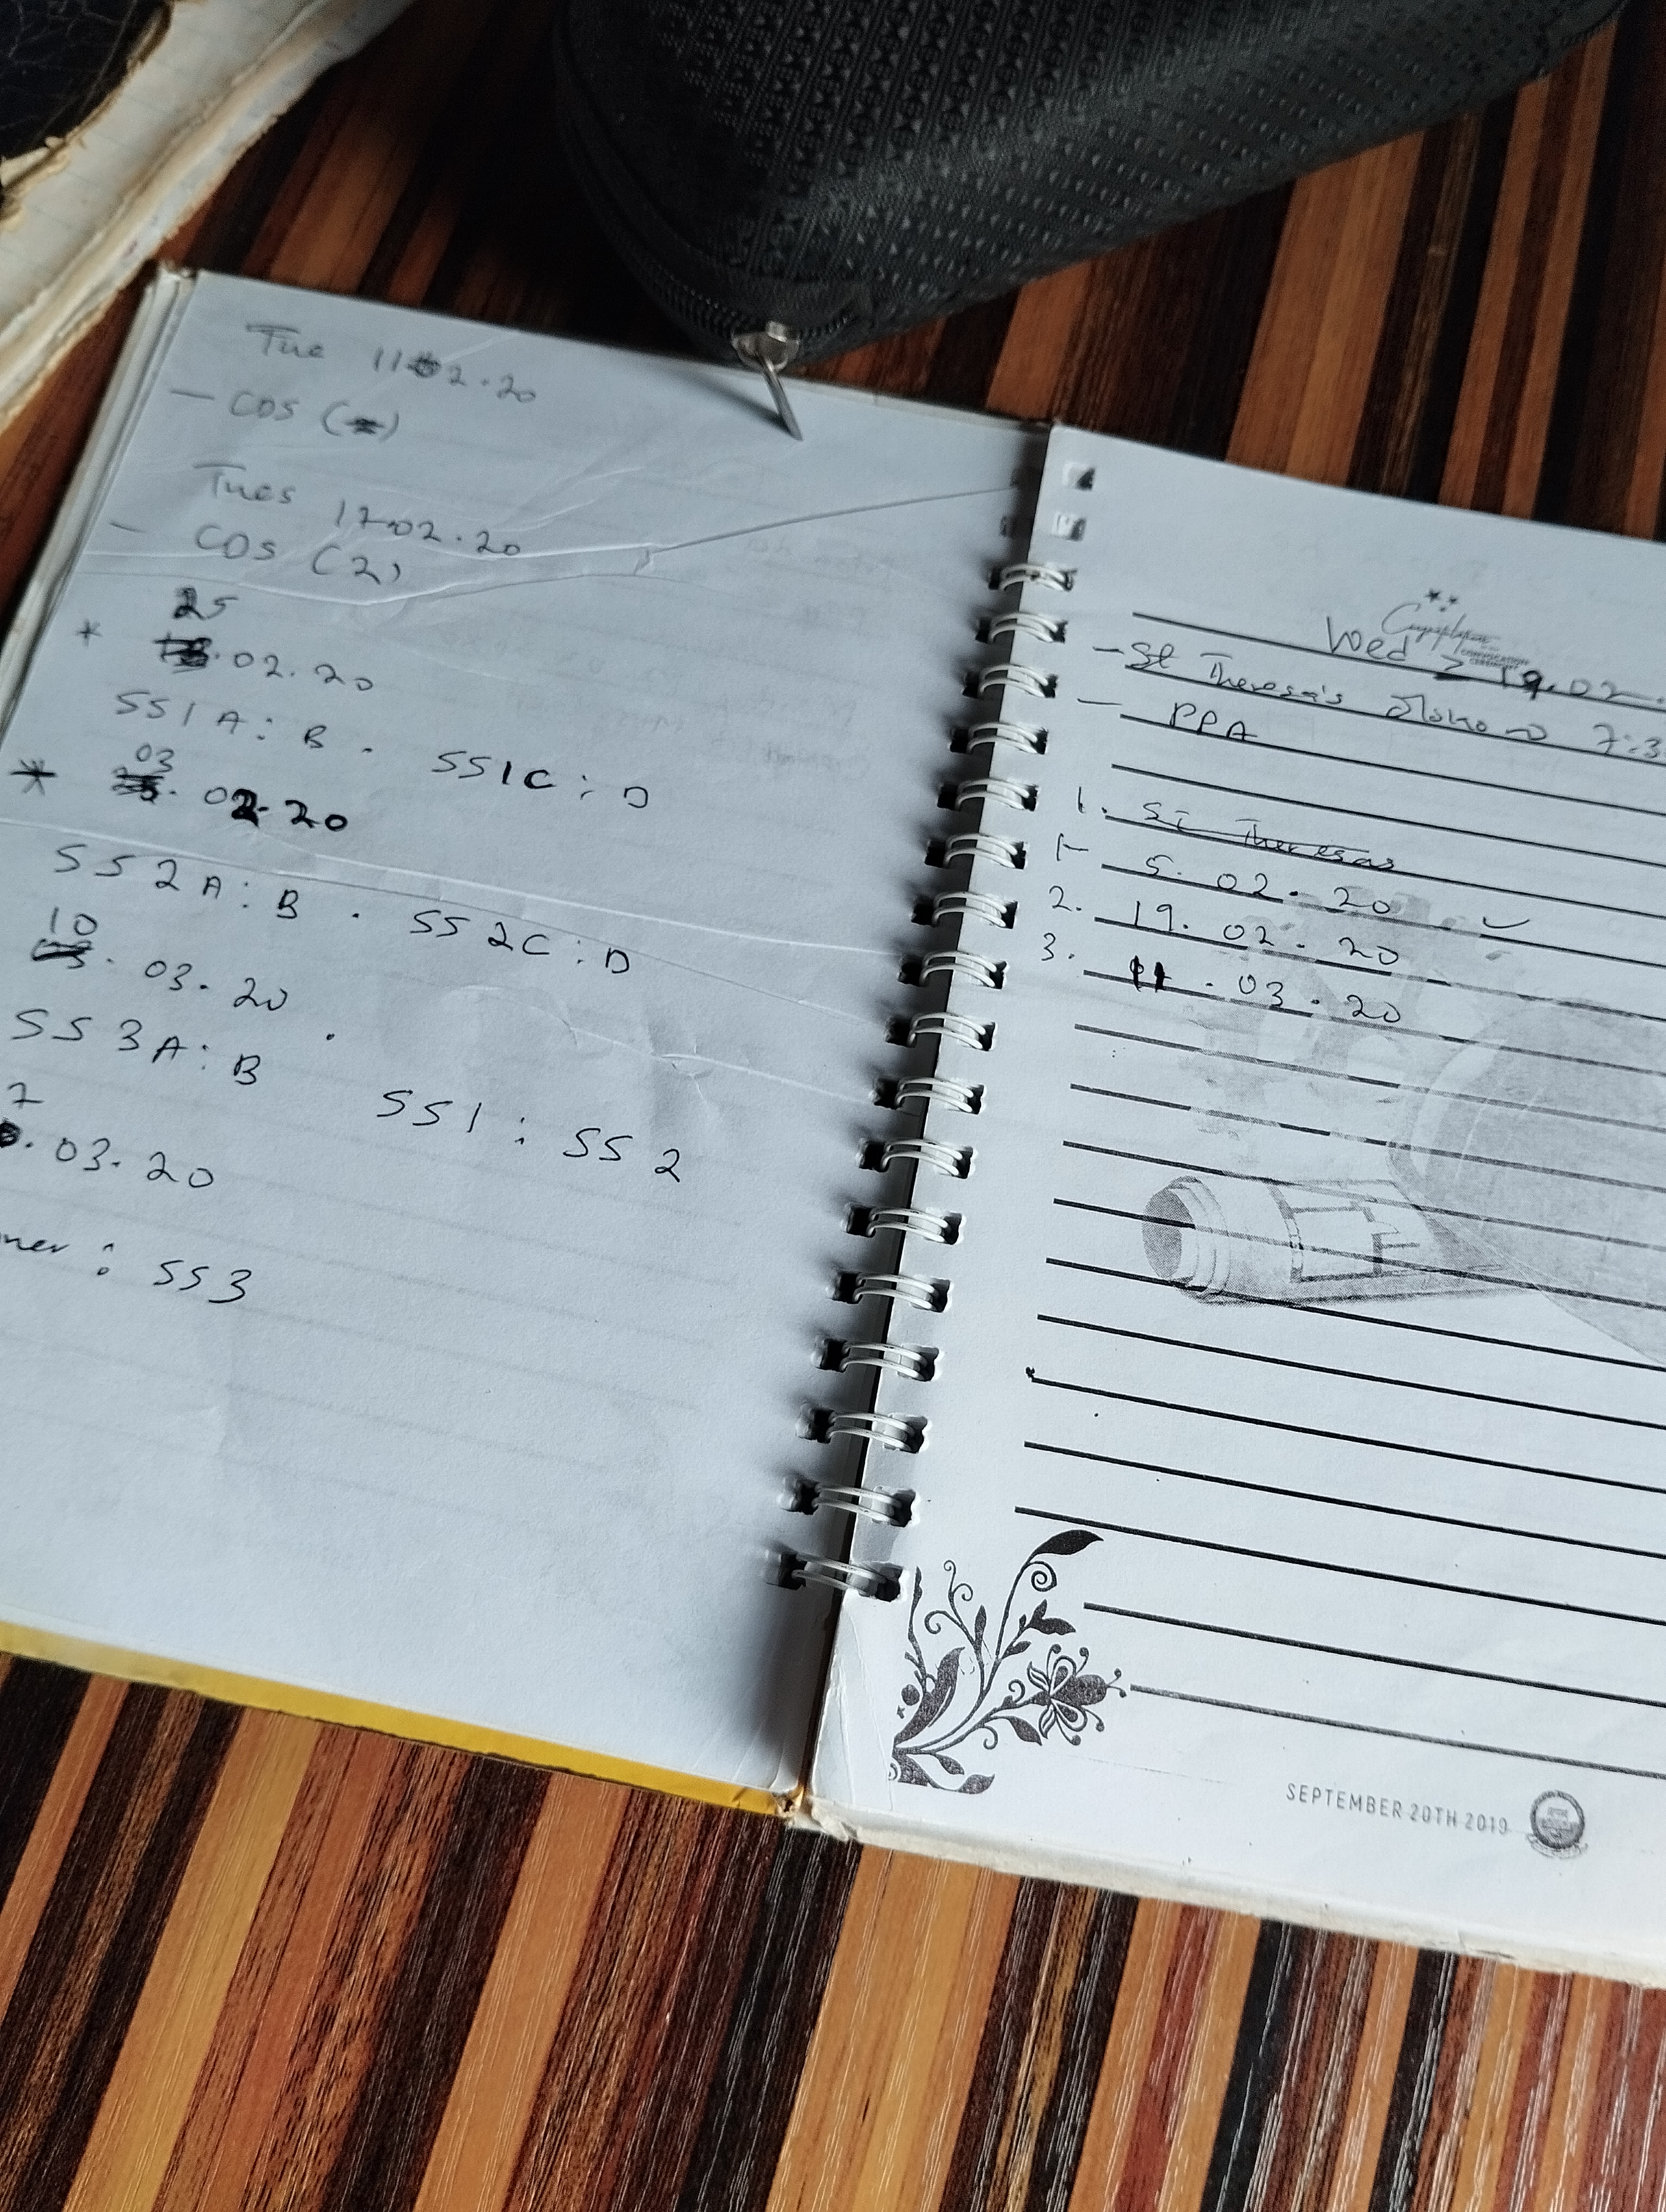 Tue 11.02.20
- CDS ( )
Tues 17.02.20
- CDS (2)
25
* .02.20
SS1 A : B . SS1C : D
03
* . 02.20
SS 2 A : B . SS 2C : D
10
. 03. 20
SS 3 A : B . SS1 : SS 2
7
. 03. 20
: SS3
Wed 19.02.
- St Theresa's 7:3
- PPA
1. St Theresas
1- 5. 02. 20 ✓
2. 19. 02. 20
3. 11 . 03. 20
SEPTEMBER 20TH 2019